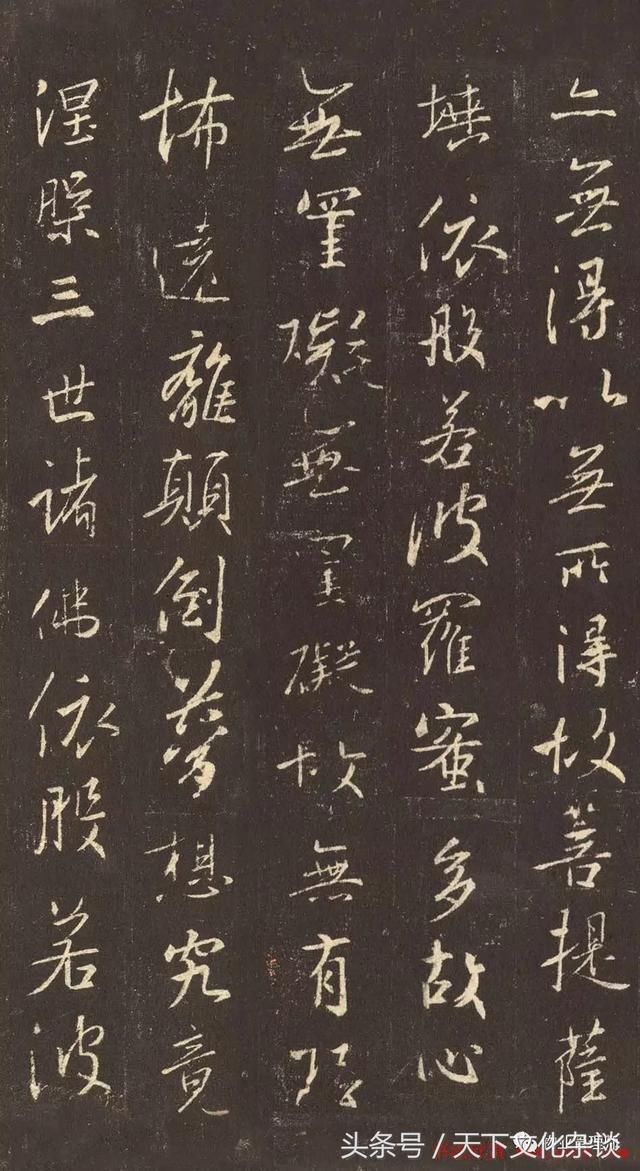 亦無得以無所得故菩提薩
埵依般若波羅蜜多故心
無罣礙無罣礙故無有恐
怖遠離顛倒夢想究竟
涅槃三世諸佛依般若波
头条号 / 天下文化杂谈